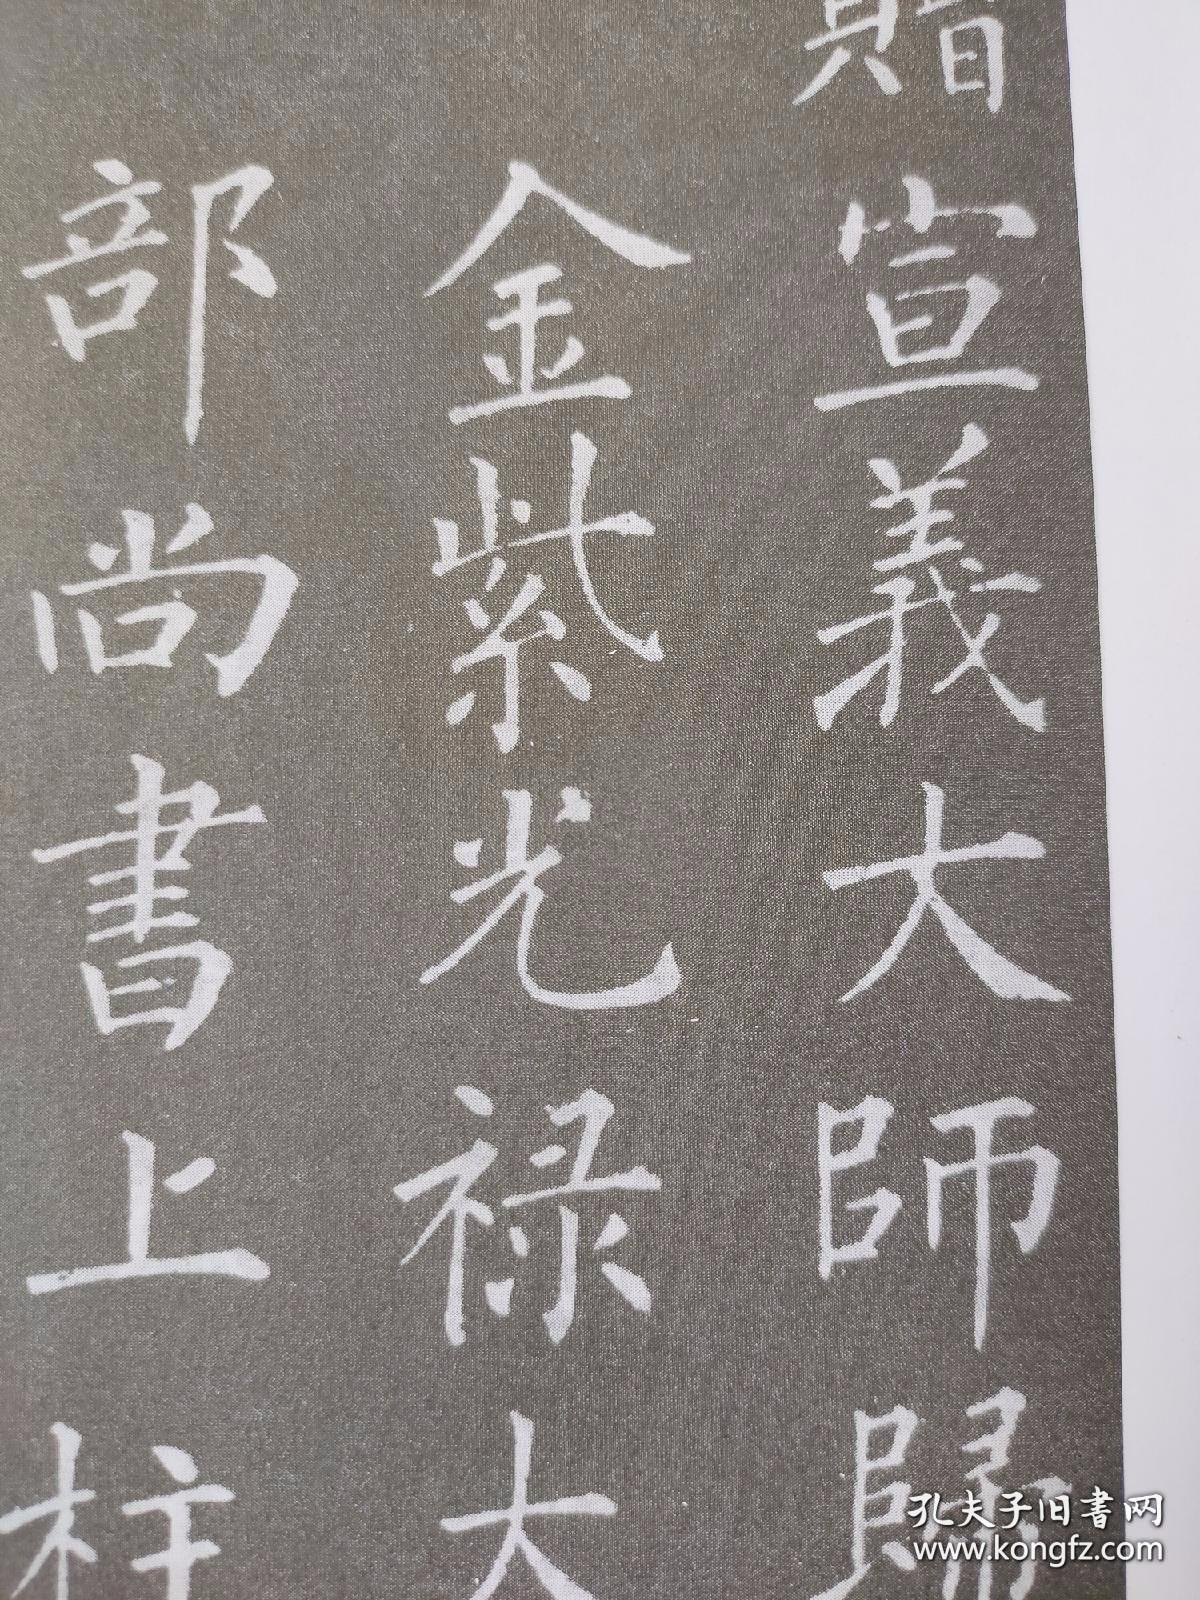 贈宣義大師歸
金紫光祿大
部尚書上柱
孔夫子旧書网
www.kongfz.com